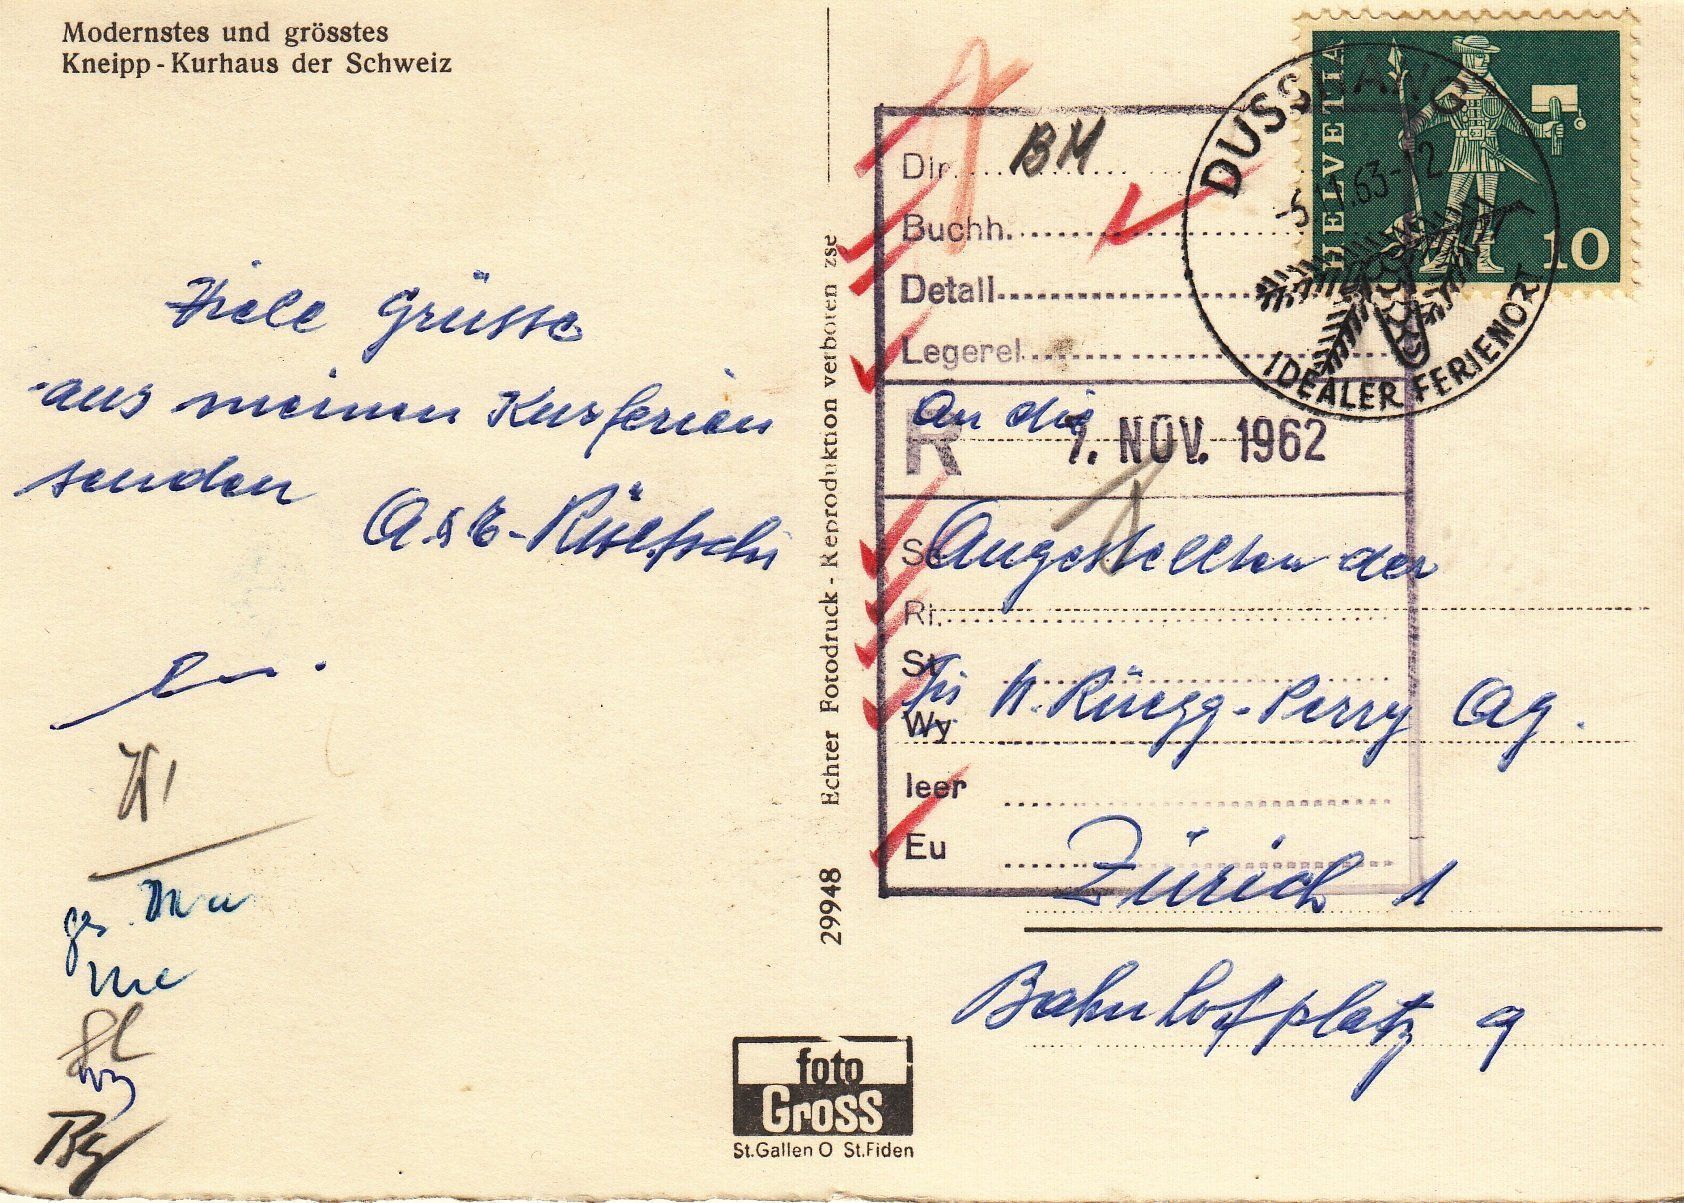 Modernstes und grösstes
Kneipp-Kurhaus der Schweiz
Viele Grüsse
aus meinen Kurferien
senden
A. & E. Rüetschi
ges.
Echter Fotodruck - Reproduktion verboten zse
29948
foto
Gross
St.Gallen O St.Fiden
HELVETIA
10
DUSSNANG
-5.11.63-12
IDEALER FERIENORT
Dir. BM
Buchh.
Detail
Legerel
R 7. NOV. 1962
Sc
Ri.
St
Wy
leer
Eu
An die
Angestellten der
Fa. H. Rüegg-Perry AG.
Zürich 1
Bahnhofplatz 9